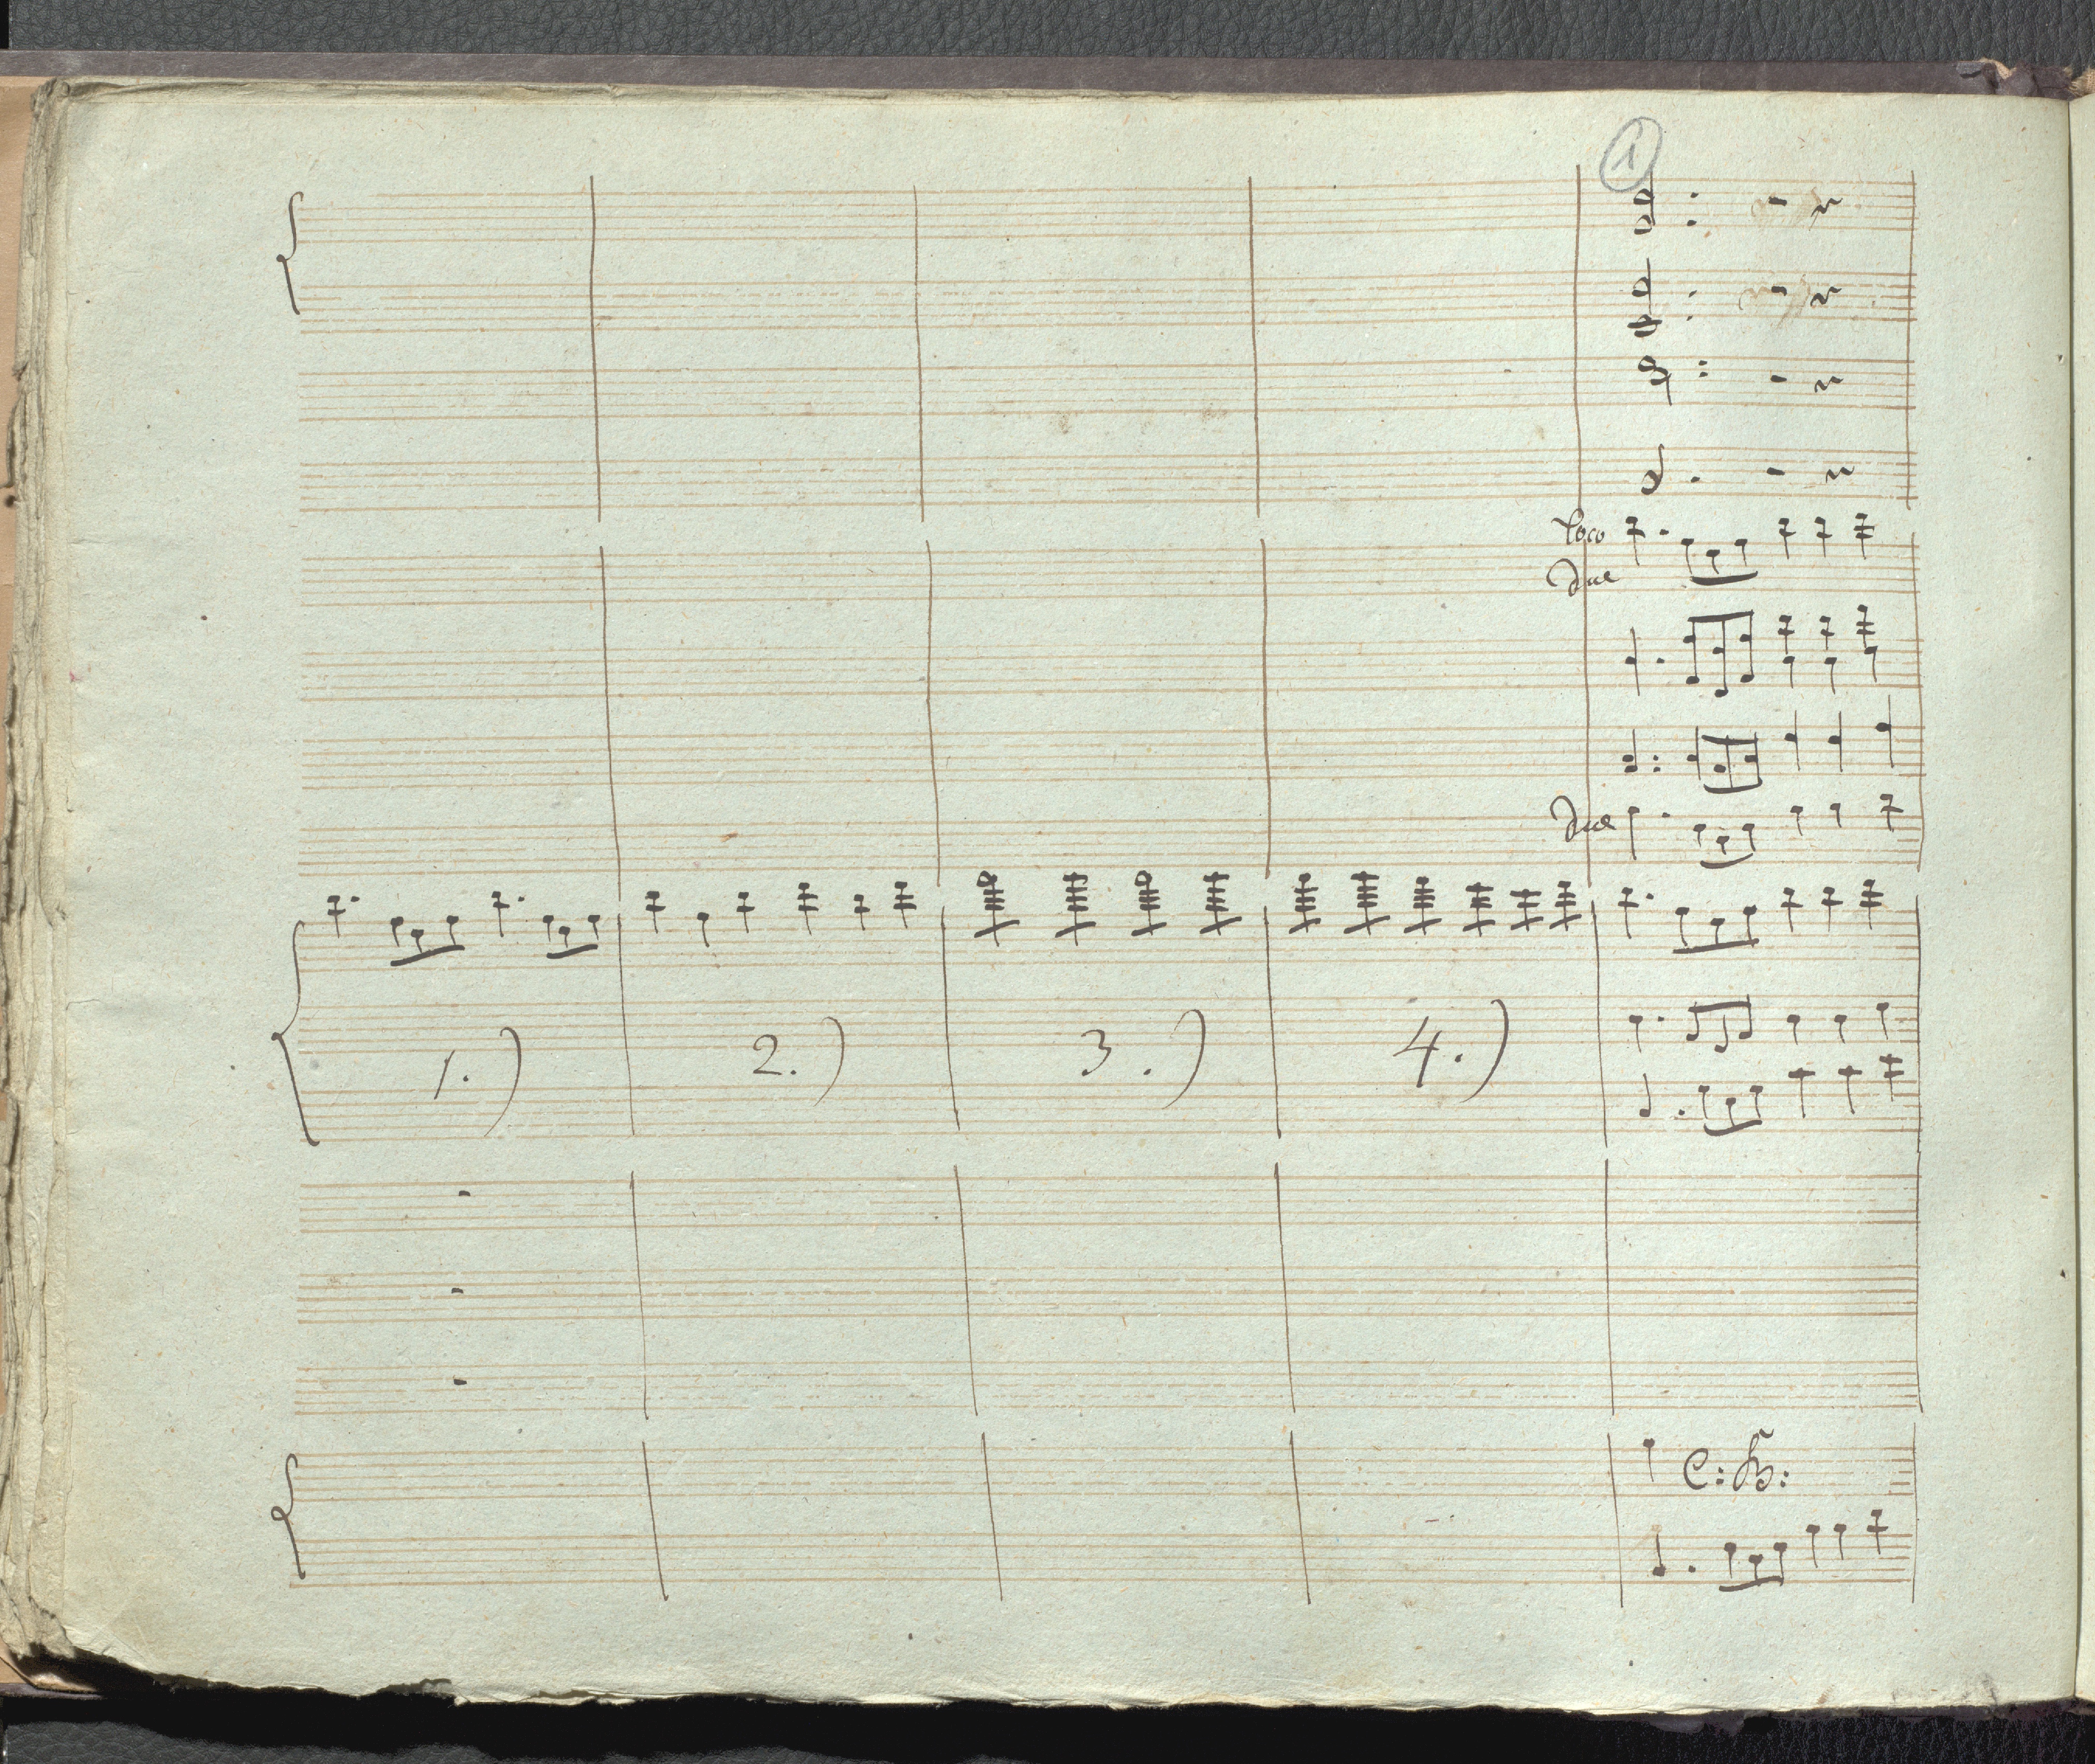 1
loco
due
due
1.) 2.) 3.) 4.)
C: B: